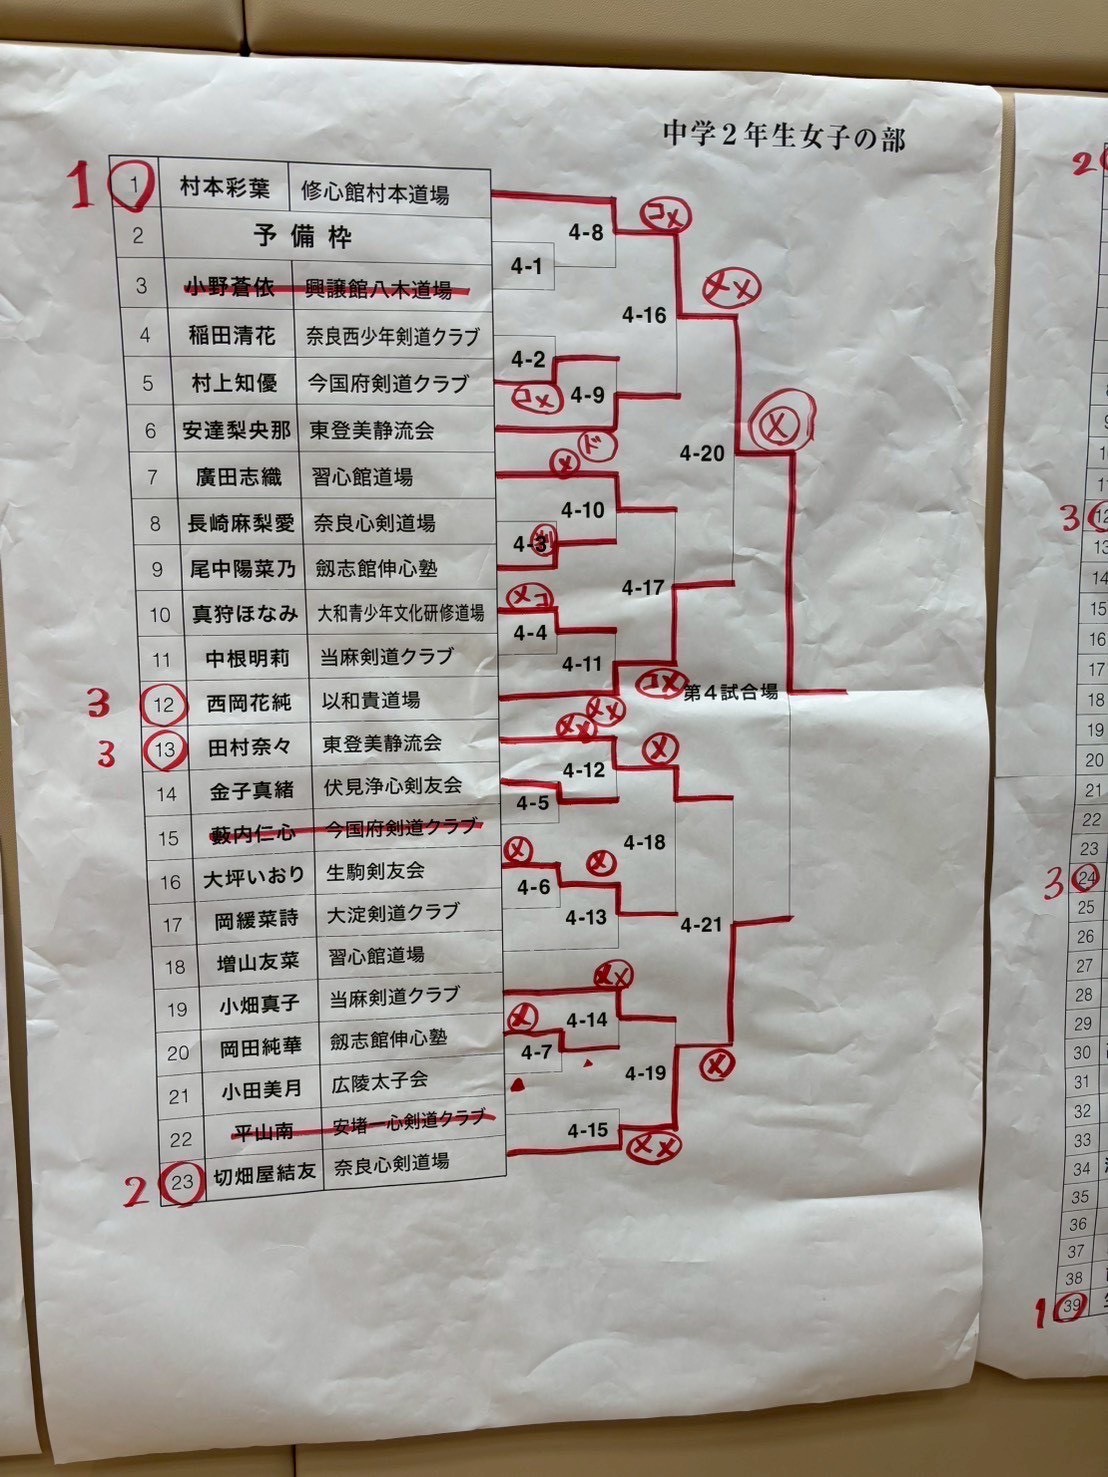 中学2年生女子の部
1 1 村本彩葉 修心館村本道場
2 予備枠
3 小野蒼依 興譲館八木道場
4 稲田清花 奈良西少年剣道クラブ
5 村上知優 今国府剣道クラブ
6 安達梨央那 東登美静流会
7 廣田志織 習心館道場
8 長崎麻梨愛 奈良心剣道場
9 尾中陽菜乃 劔志館伸心塾
10 真狩ほなみ 大和青少年文化研修道場
11 中根明莉 当麻剣道クラブ
3 12 西岡花純 以和貴道場
3 13 田村奈々 東登美静流会
14 金子真緒 伏見浄心剣友会
15 藪内仁心 今国府剣道クラブ
16 大坪いおり 生駒剣友会
17 岡綾菜詩 大淀剣道クラブ
18 増山友菜 習心館道場
19 小畑真子 当麻剣道クラブ
20 岡田純華 劔志館伸心塾
21 小田美月 広陵太子会
22 平山南 安堵一心剣道クラブ
2 23 切畑屋結友 奈良心剣道場
4-1
4-2
コメ
4-3
メコ
4-4
4-5
メ
4-6
メ
4-7
4-8
4-9
ド
メ
4-10
4-11
メメ
メメ
4-12
メ
4-13
メメ
4-14
4-15
コメ
4-16
4-17
コメ
メ
4-18
4-19
メメ
メメ
4-20
4-21
メ
メ
第4試合場
2
3 12
13
14
15
16
17
18
19
20
21
22
23
3 24
25
26
27
28
29
30
31
32
33
34
35
36
37
38
1 39